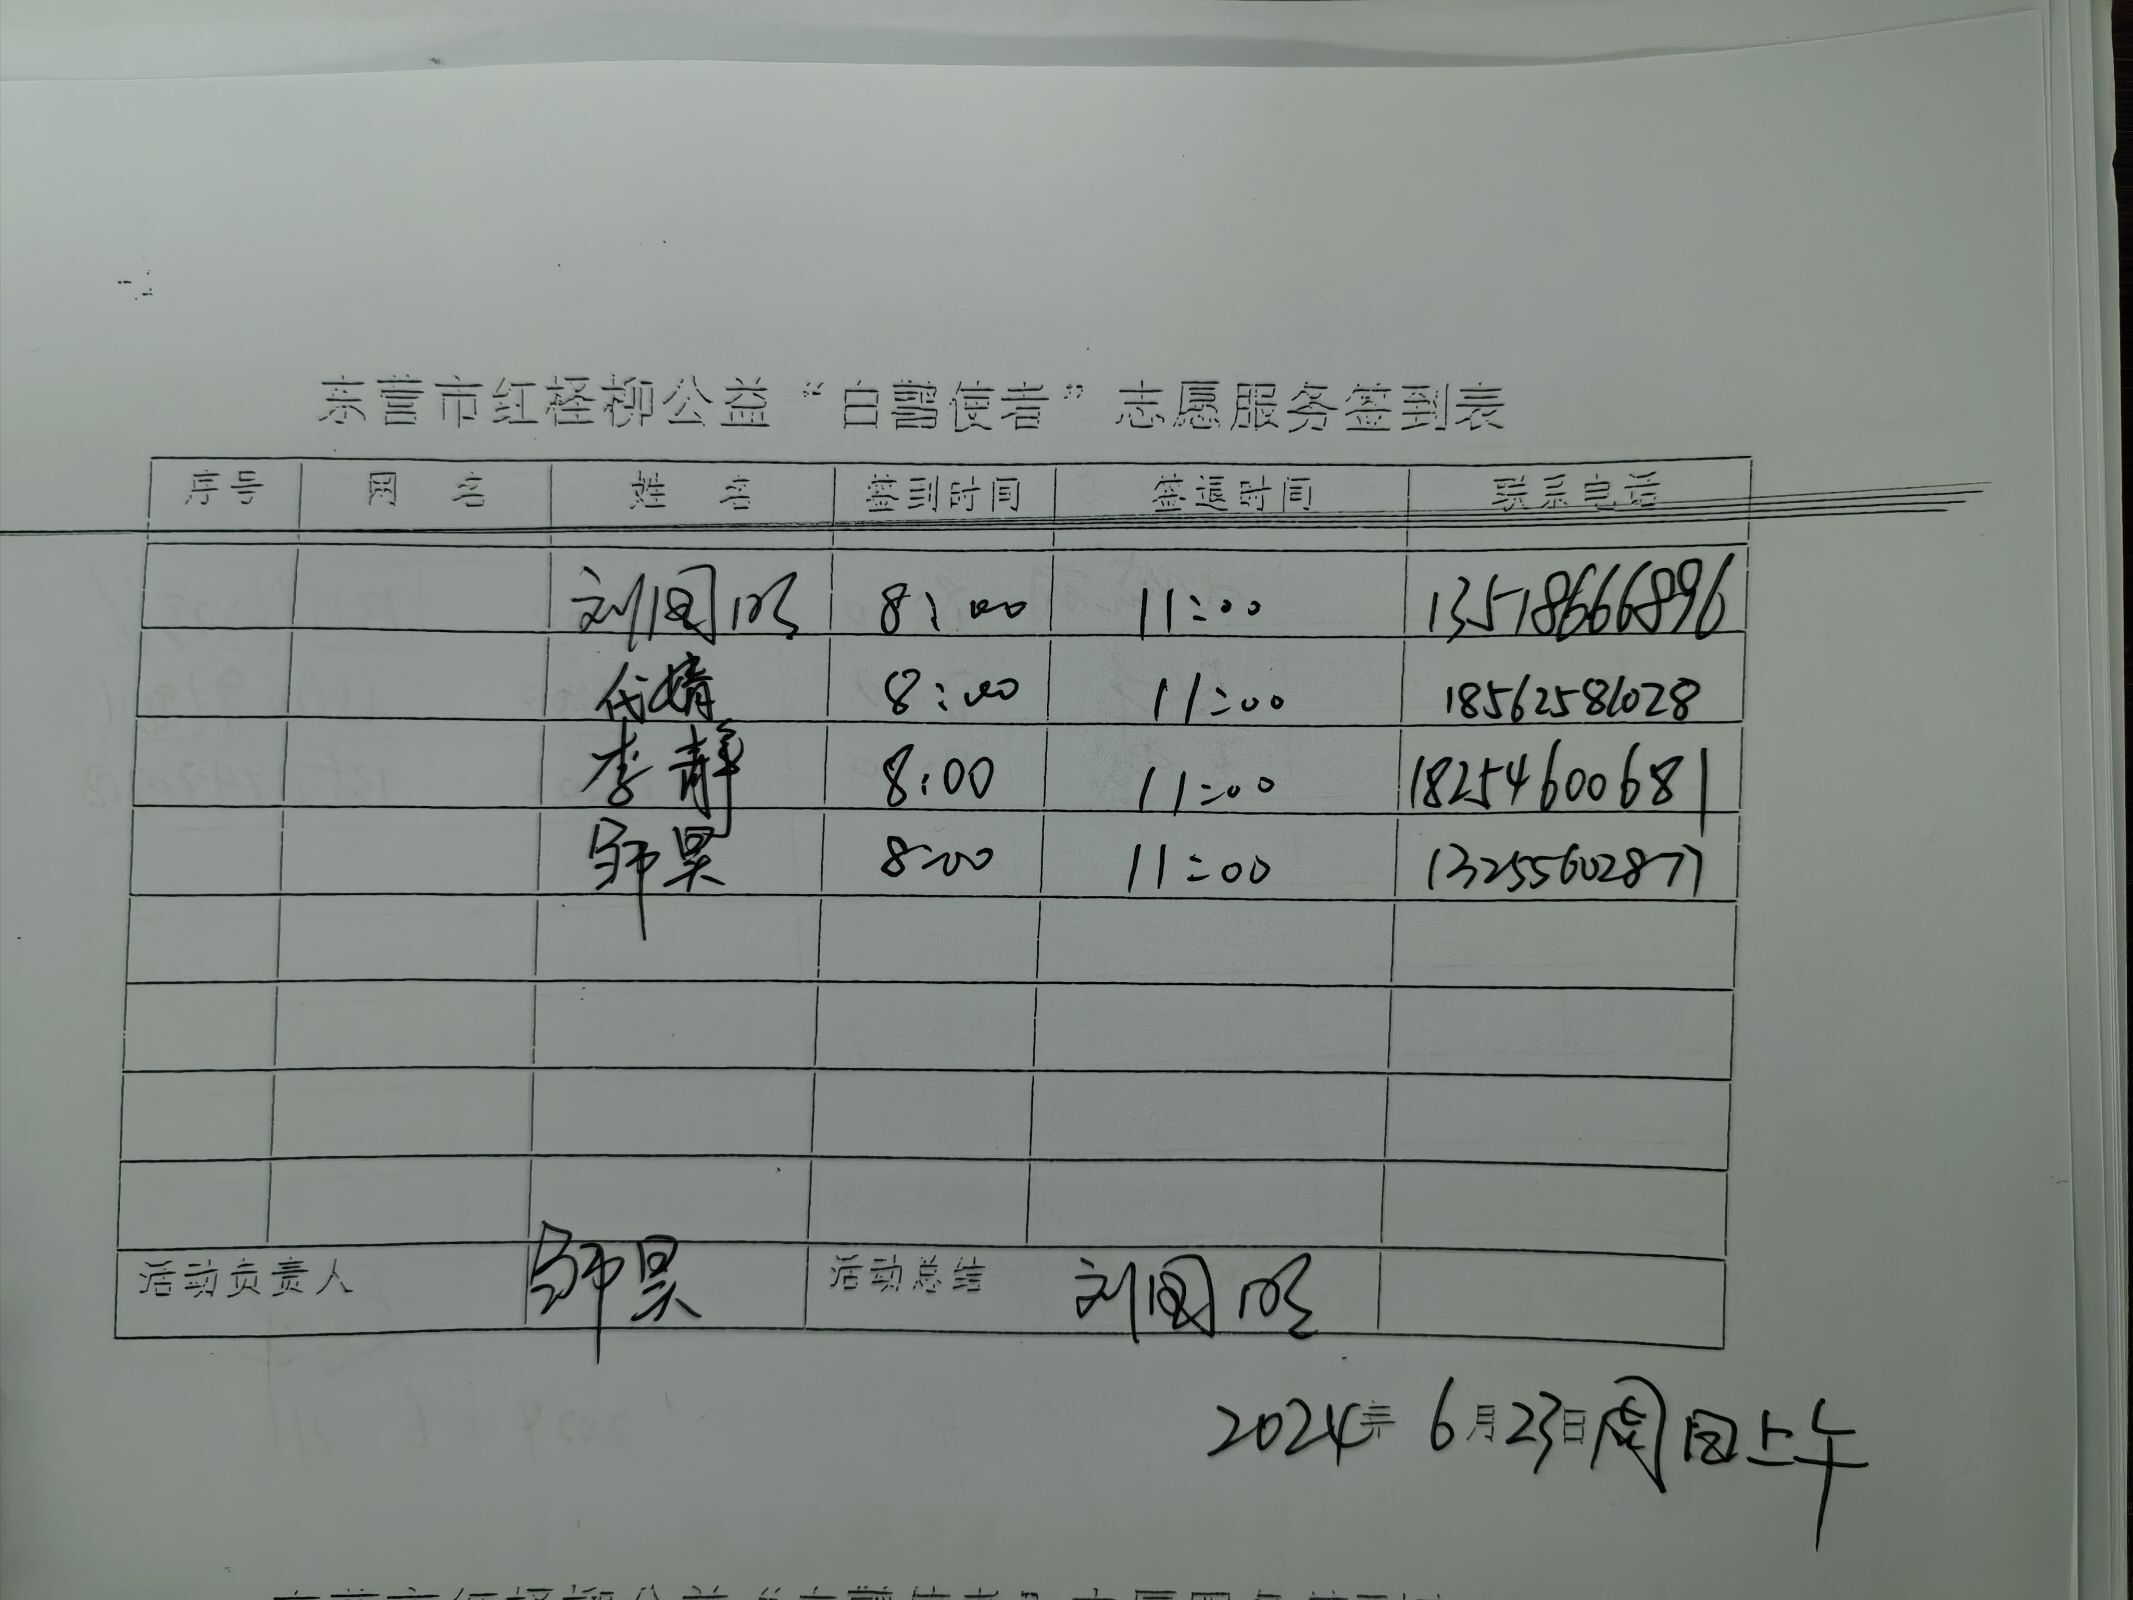 东营市红柽柳公益“白鹭使者”志愿服务签到表
序号 网 名 姓 名 签到时间 签退时间 联系电话
刘国明 8:00 11:00 13518666896
代婧 8:00 11:00 18562586028
李静 8:00 11:00 18254600681
邹昊 8:00 11:00 13255602877
活动负责人 邹昊 活动总结 刘国明
2024年 6月23日周日上午